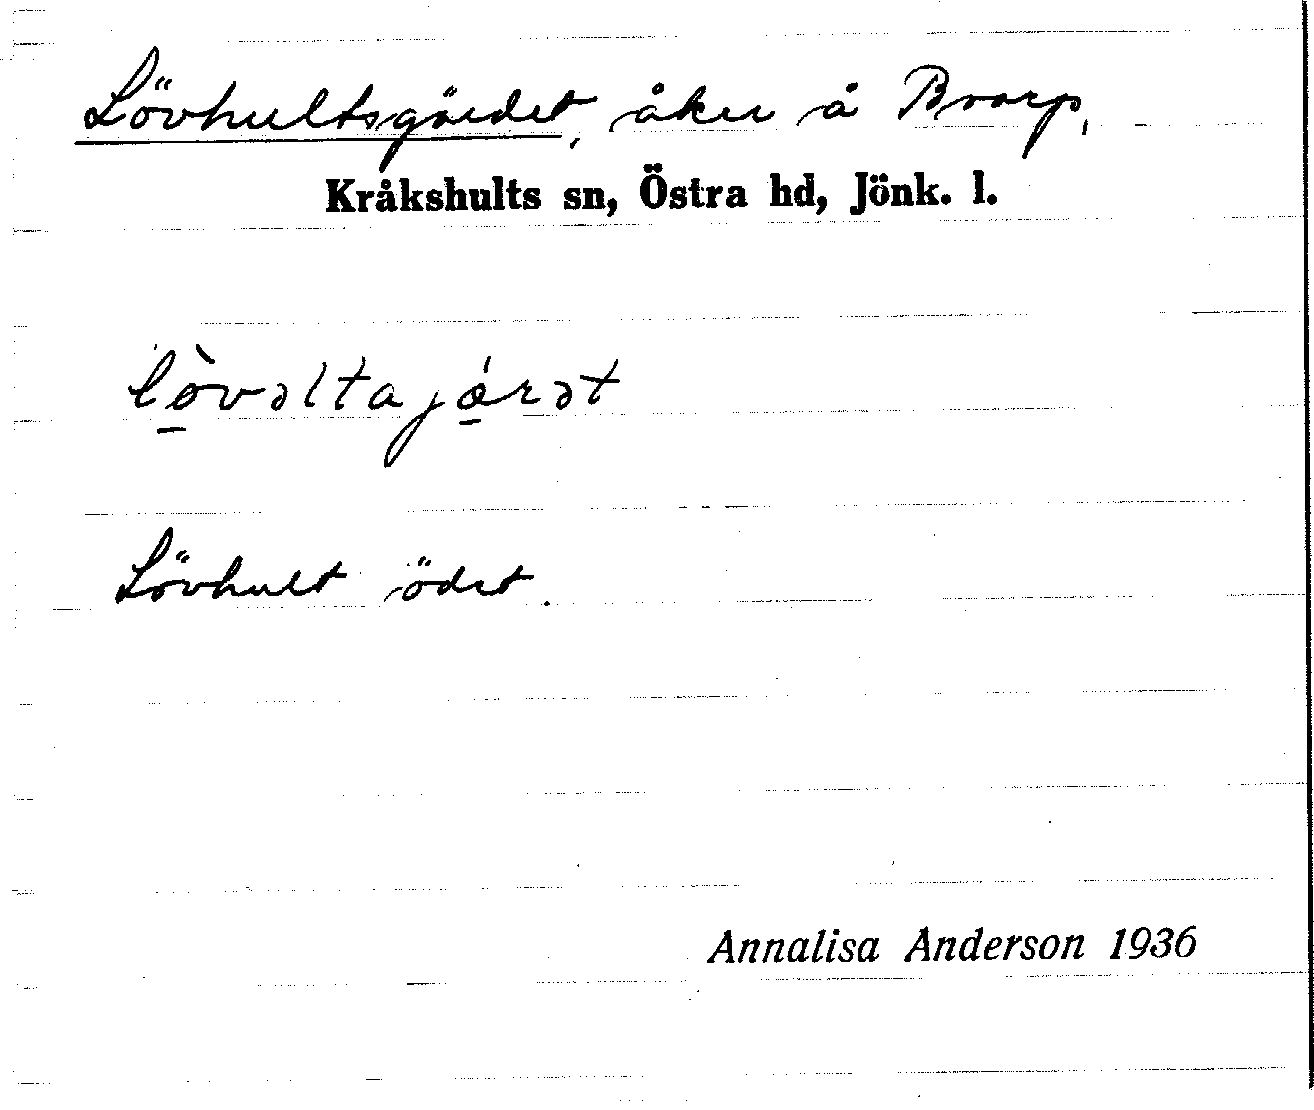 Lövhultsgärdet, åker å Broarp,
Kråkshults sn, Östra hd, Jönk. l.
lø̀vəltajǽrət
Lövhult ödet.
Annalisa Anderson 1936